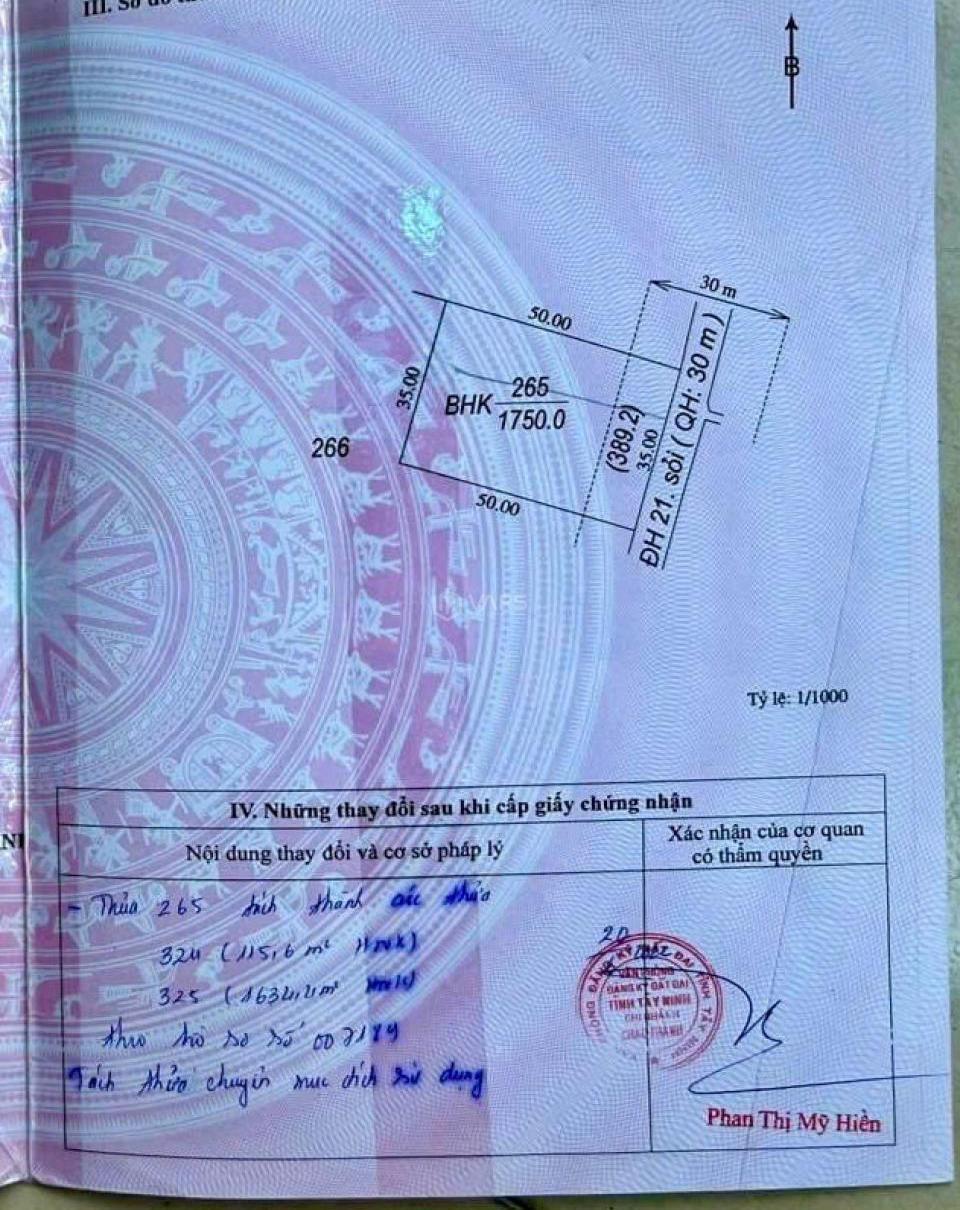 III. Sơ đồ
B
30 m
50.00
35.00
BHK 265
1750.0
(389.2)
35.00
ĐH 21. sỏi ( QH: 30 m )
266
50.00
Tỷ lệ: 1/1000
IV. Những thay đổi sau khi cấp giấy chứng nhận
Nội dung thay đổi và cơ sở pháp lý
Xác nhận của cơ quan
có thẩm quyền
- Thửa 265 tách thành các thửa
324 (115,6 m² HNK)
325 (1634,4 m² HNK)
theo hồ sơ số
Tách thửa chuyển mục đích sử dụng
20
VĂN PHÒNG
ĐĂNG KÝ ĐẤT ĐAI
TỈNH TÂY NINH
CHI NHÁNH
CHÂU THÀNH
Phan Thị Mỹ Hiền